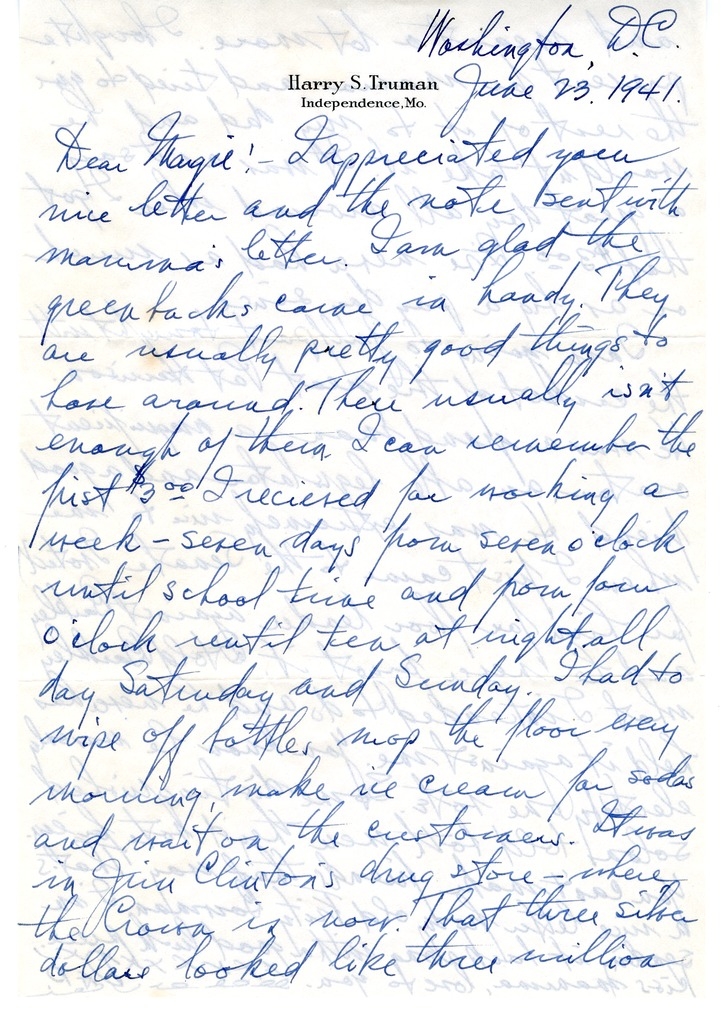 Washington, D.C.
Harry S. Truman
Independence, Mo.
June 23. 1941.
Dear Margie!- I appreciated your
nice letter and the note sent with
mamma's letter. I am glad the
greenbacks came in handy. They
are usually pretty good things to
have around. There usually isn't
enough of them. I can remember the
first $3.00 I recieved for working a
week - seven days from seven o'clock
until school time and from four
o'clock until ten at night, all
day Saturday and Sunday. I had to
wipe off bottles, mop the floor every
morning, make ice cream for sodas
and wait on the customers. It was
in Jim Clinton's drug store - where
the Crown is now. That three silver
dollars looked like three million